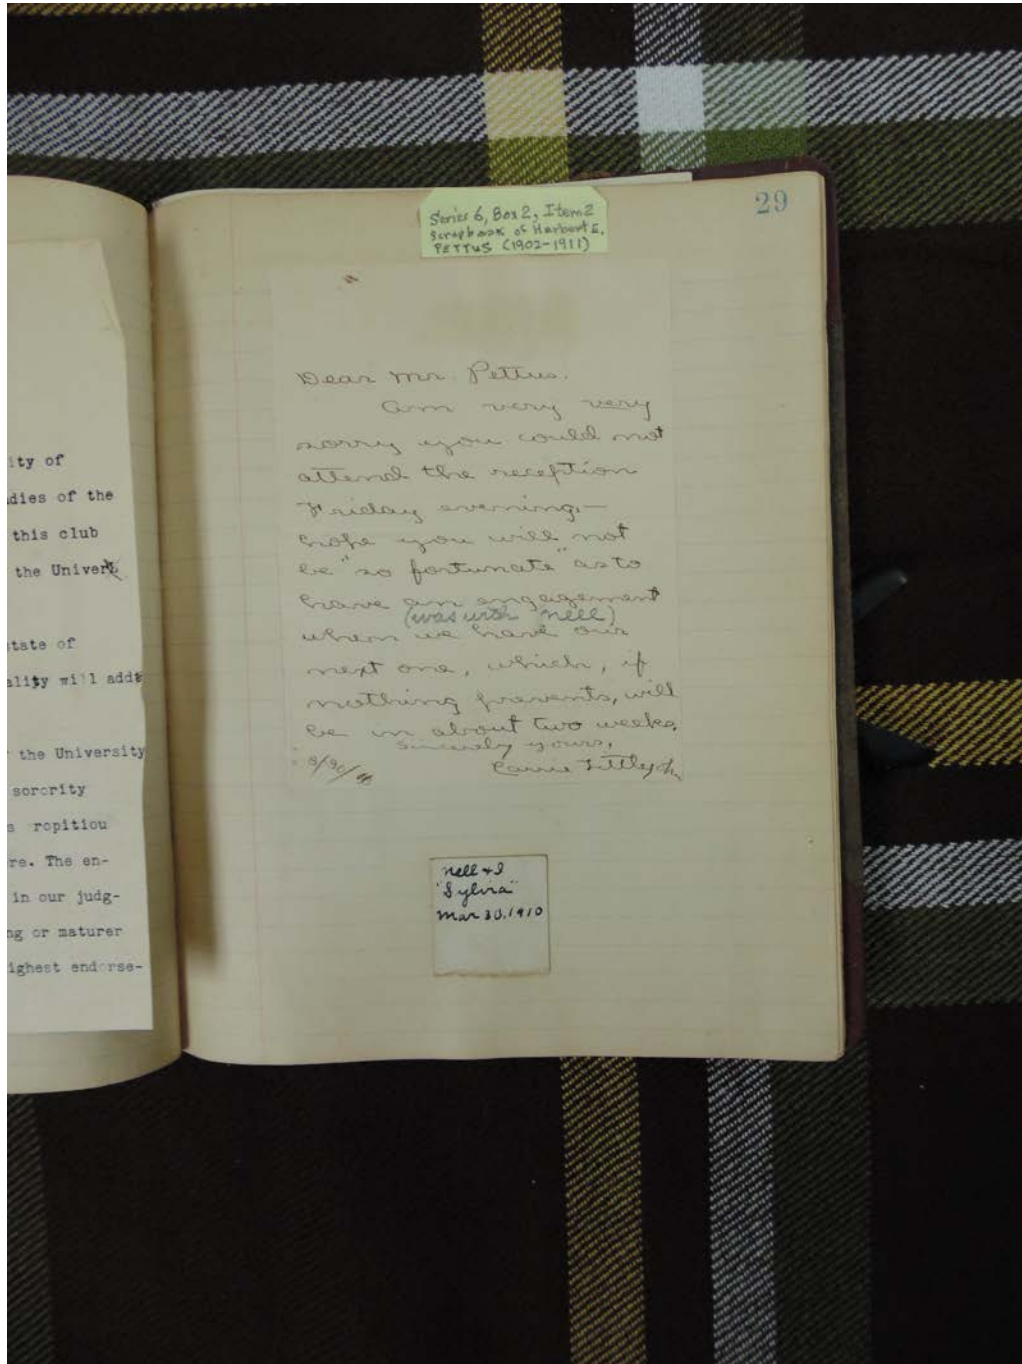 ity of
dies of the
this club
the Univer
state of
ality will add
the University
sorority
s ropitiou
re. The en-
in our judg-
ng or maturer
ighest endorse-
29
Series 6, Box 2, Item 2
Scrapbook of Harbert E.
PETTUS (1902-1911)
Dear Mr. Pettus.
Am very very
sorry you could not
attend the reception
Friday evening,—
hope you will not
be "so fortunate" as to
have an engagement
(was with "Nell)
when we have our
next one, which, if
nothing prevents, will
be in about two weeks.
Sincerely yours,
Carrie
Nell & I
"Sylvia"
Mar 30, 1910